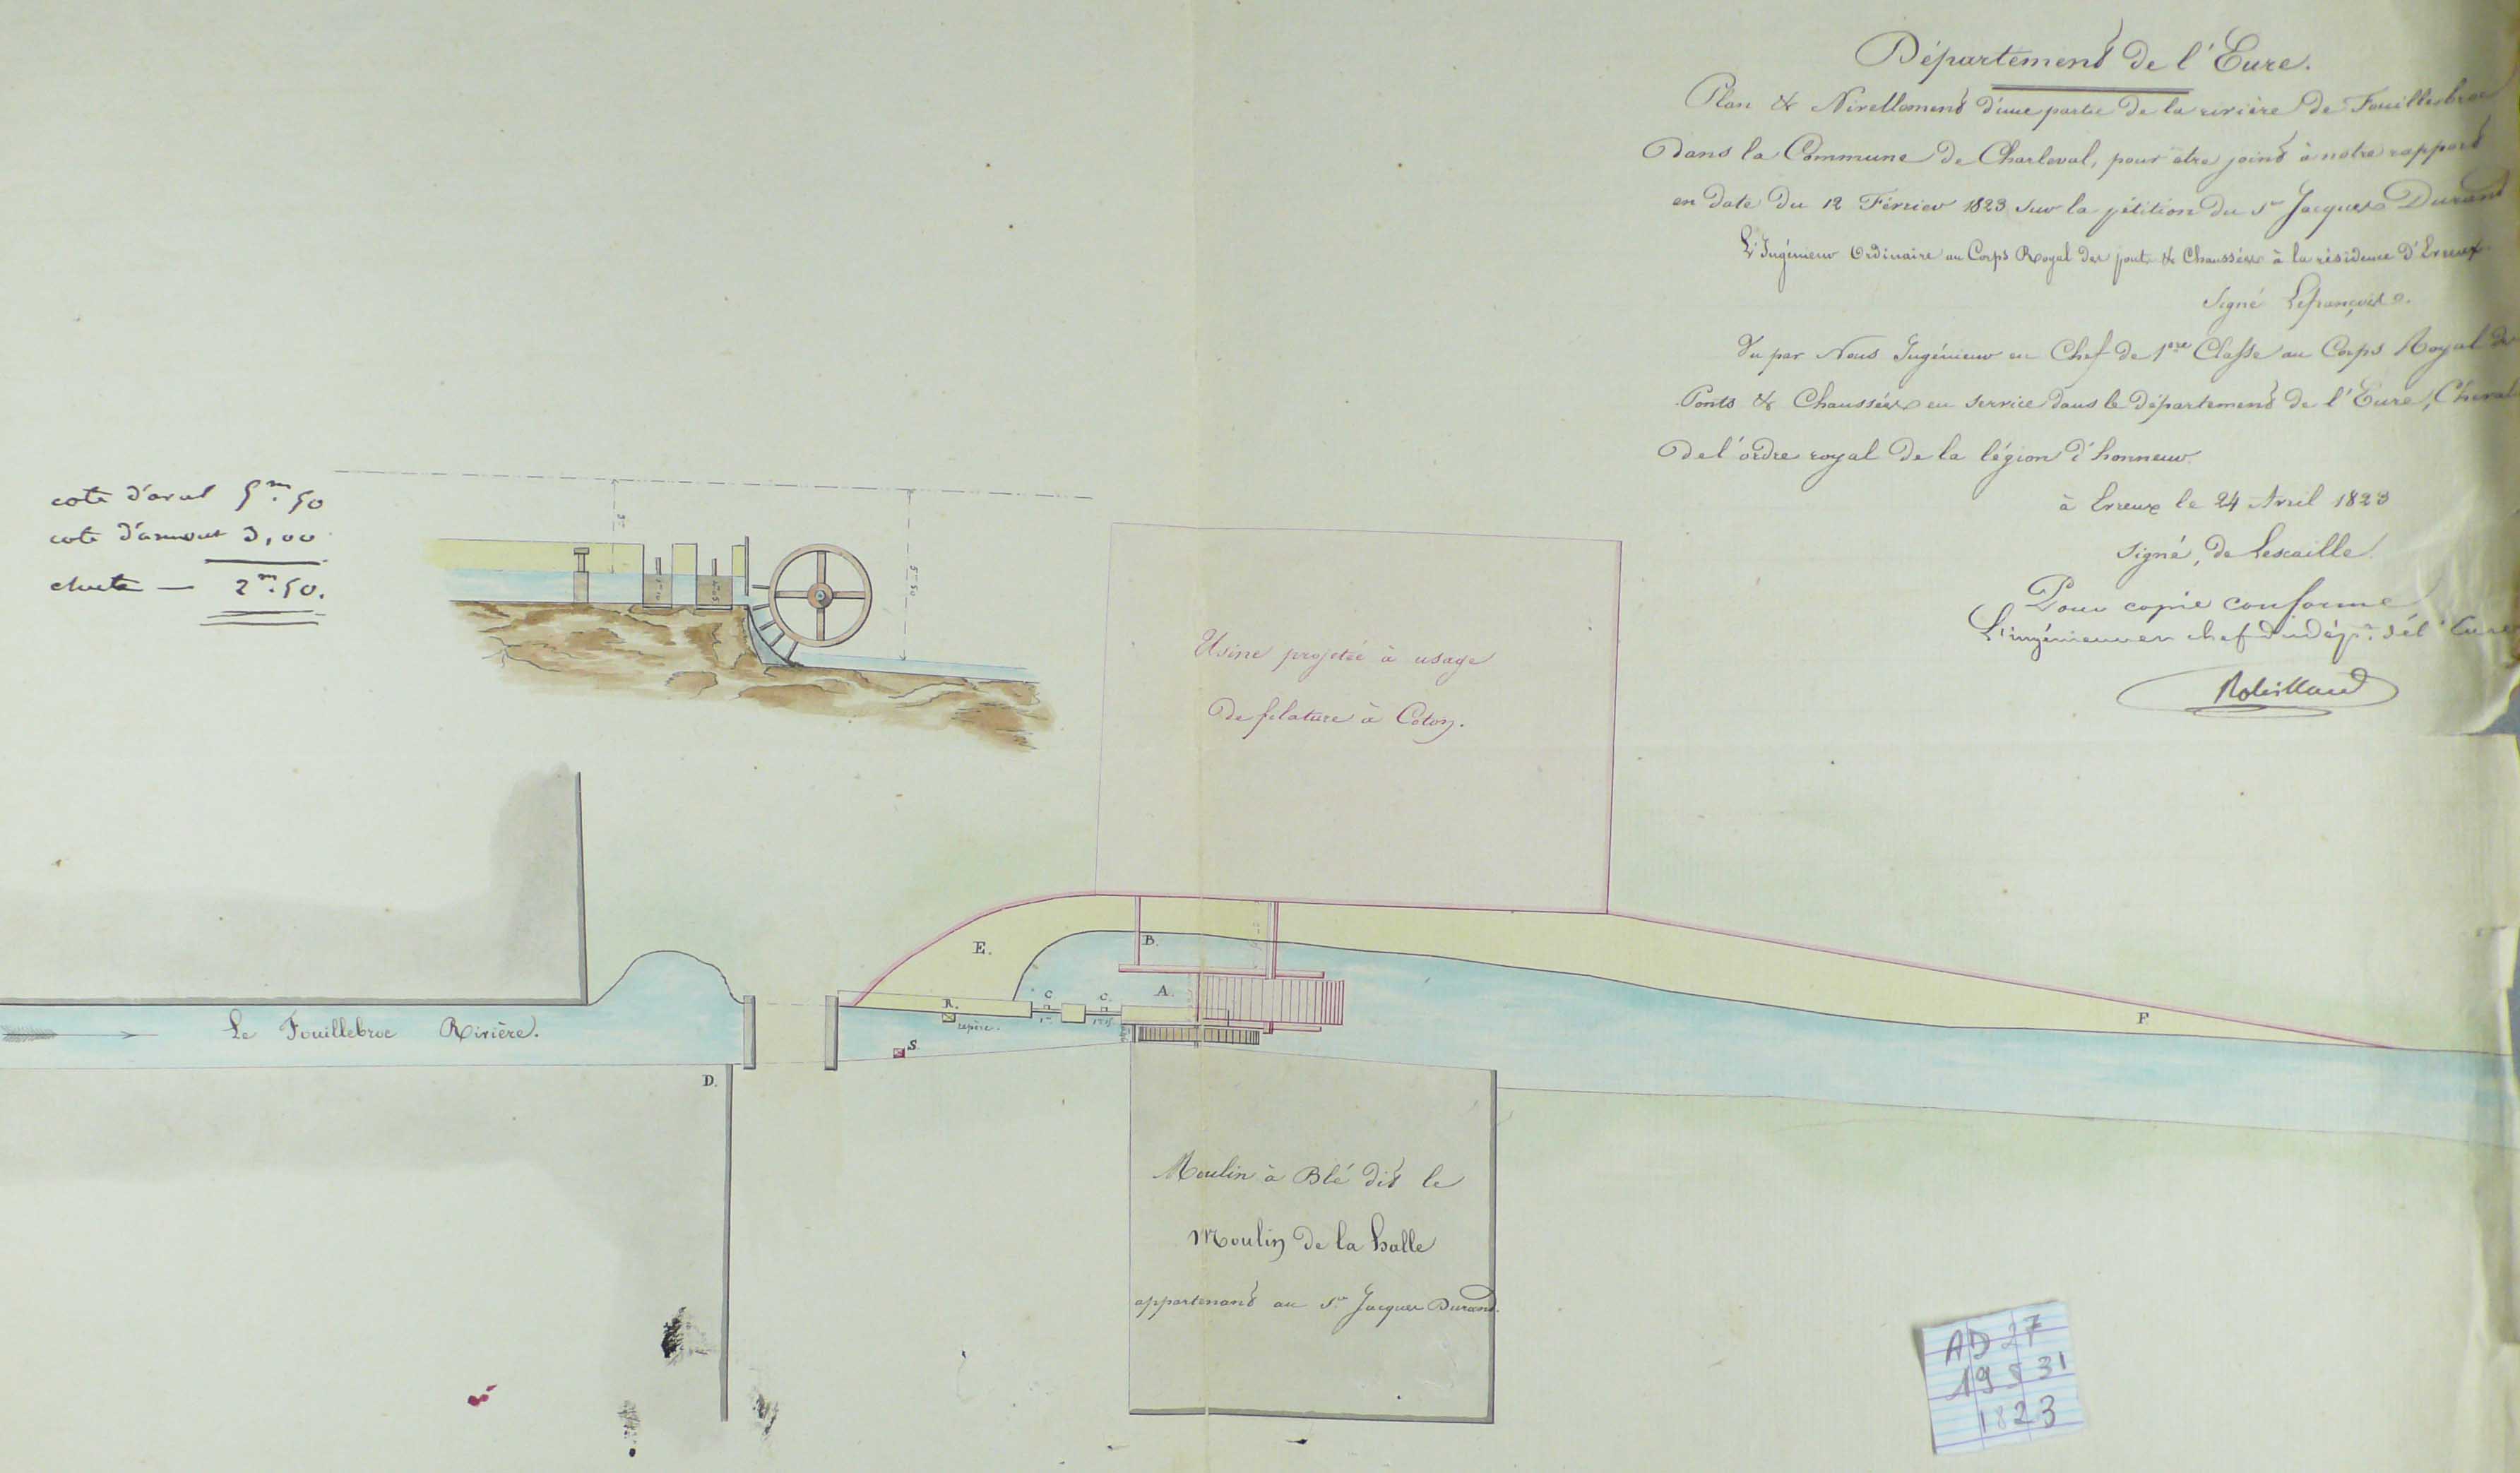 Département de l'Eure.
Plan & Nivellement d'une partie de la rivière de Fouillebroc
Dans la Commune de Charleval, pour être joint à notre rapport
en date du 12 Février 1823 sur la pétition du Sr Jacques Durand
L'Ingénieur Ordinaire au Corps Royal des ponts & Chaussées à la résidence d'Evreux
Signé Lefrançois.
Vu par Nous Ingénieur en Chef de 1ere Classe au Corps Royal des
Ponts & Chaussées en service dans le département de l'Eure, Cheval
De l'ordre royal de la légion d'honneur.
à Evreux le 24 Avril 1823
Signé, de Lescaille.
Pour copie conforme
L'ingénieur en chef du dépt. de l'Eure
Robillard
cote d'aval 5m.50
cote d'amont 3,00
chute — 2m.50.
3m
5m 50
Usine projetée à usage
De filature à Coton.
E.
B.
A.
C.
C.
R.
repère.
1m
S.
D.
F.
Le Fouillebroc Rivière.
Moulin à Blé dit le
Moulin de la halle
appartenant au Sr. Jacques Durand.
AD 27
19 S 31
1823